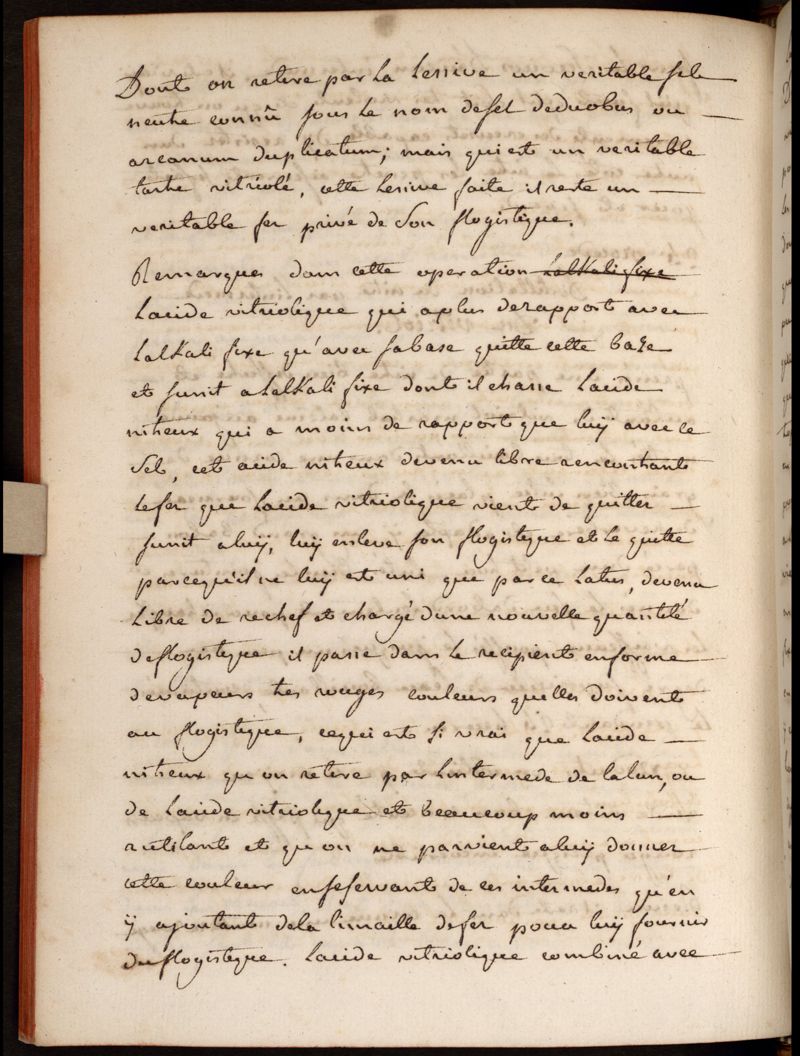 Dont on retire par la lessive un veritable sel
neutre connû sous le nom desel deduobus ou
arcanum duplicatum; mais qui est un veritable
tartre vitriolé, cette lessive faite il reste un
veritable fer privé de son flogistique.
Remarques dans cette operation lalkali fixe
lacide vitriolique qui aplus derapport avec
lalkali fixe qu'avec sabase quitte cette base
et sunit alalkali fixe dont il chasse lacide
nitreux qui a moins de rapport que luÿ avec ce
Sel, cet acide nitreux devenu libre rencontrant
lefer que lacide vitriolique vient de quitter
sunit aluÿ, luÿ enleve son flogistique et le quitte
parcequ'il ne luÿ est uni que par ce latus, devenu
libre de rechef et chargé dune nouvelle quantité
deflogistique il passe dans le recipient enforme
devapeurs tres rouges couleurs quelles doivent
au flogistique, cequi est si vrai que lacide
nitreux qu'on retire par lintermede de lalun, ou
de lacide vitriolique est beaucoup moins
rutilant et qu'on ne parvient aluÿ donner
cette couleur enseservant de ces intermedes qu'en
ÿ ajoutant dela limaille defer pour luÿ fournir
duflogistique. lacide vitriolique combiné avec